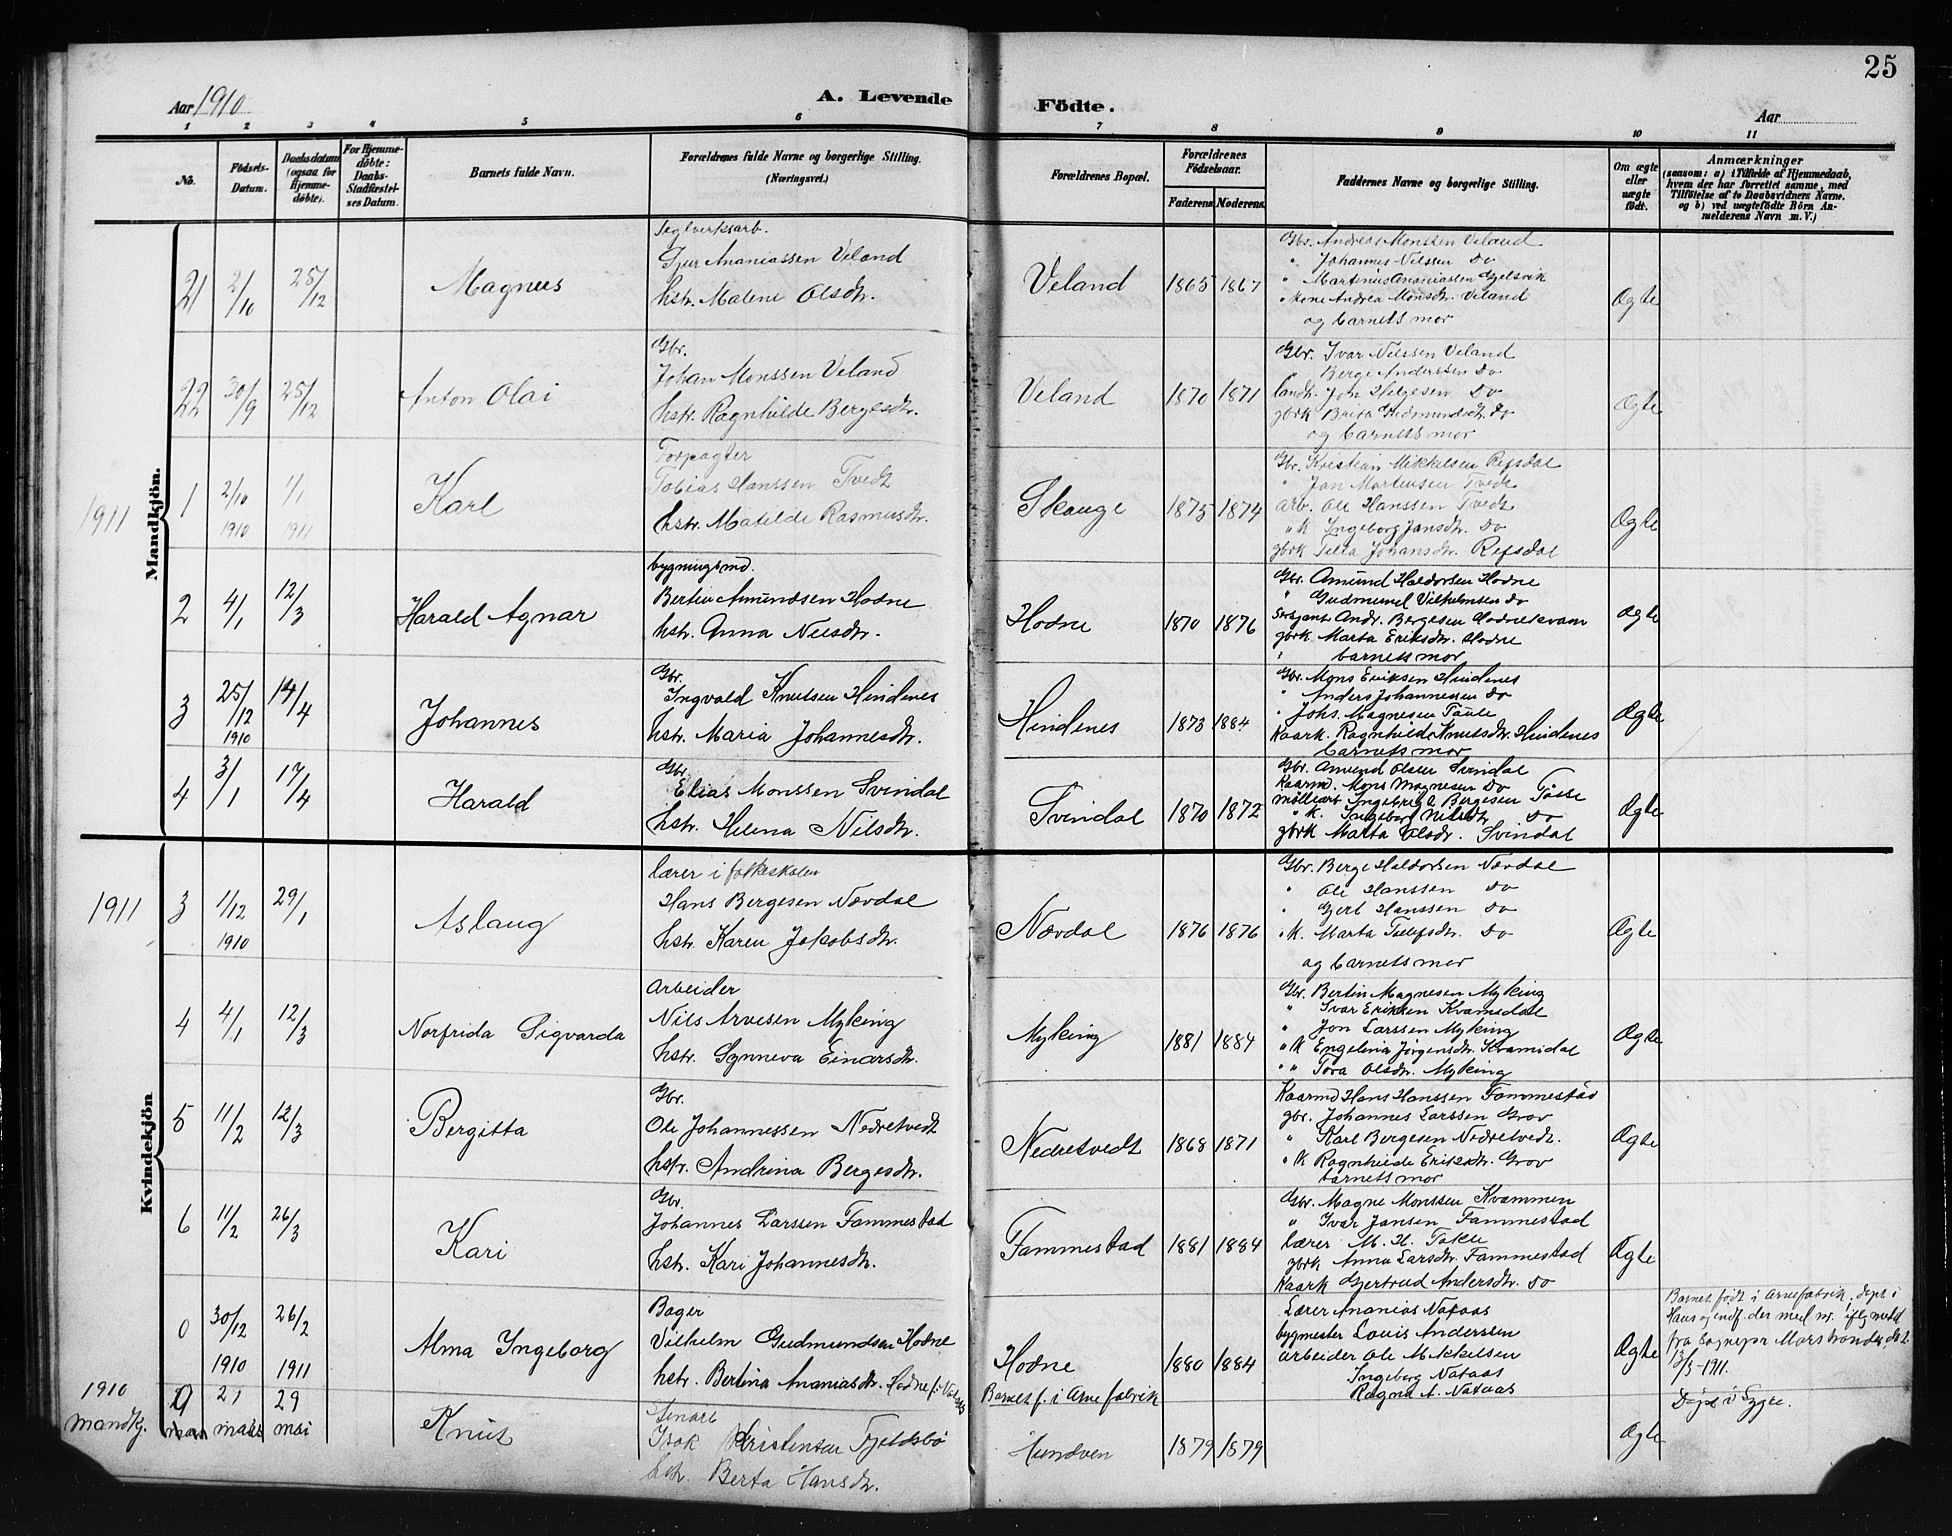 25
Aar 1910
A. Levende Födte.
Aar
1 2 3 4 5 6 7 8 9 10 11
No.
Födsels-Datum.
Daabsdatum (ogsaa for Hjemme-döbte).
For Hjemme-döbte: Daabs-Stadfæstel-ses Datum.
Barnets fulde Navn.
Forældrenes fulde Navne og borgerlige Stilling. (Næringsvei.)
Forældrenes Bopæl.
Forældrenes Födselsaar.
Faderens Moderens
Faddernes Navne og borgerlige Stilling.
Om ægte eller uægte födt.
Anmærkninger
(saasom: a) i Tilfælde af Hjemmedaab,
hvem der har forrettet samme, med
Tilföielse af to Daabsvidners Navne.
og b) ved uægtefödte Börn An-
melderens Navn m. V.)
Mandkjön.
21 2/10 25/12 Magnus
Teglverksarb.
Sjur Ananiassen Veland
hstr. Malene Olsdtr.
Veland 1865 1867
Gbr. Andreas Monssen Veland
" Johannes Nilssen Do
" Martinus Ananiassen Gjelsvik
" kone Andrea Monsdtr. Veland
og barnets mor
Ægte
22 30/9 25/12 Anton Olai
Gbr.
Johan Monssen Veland
hstr. Ragnhilde Bergesdtr.
Veland 1870 1871
Gbr. Ivar Nilssen Veland
" Berge Anderssen Do
landh. Jon Helgesen Do
gbrk Brita Gudmundsdtr. Do
og barnets mor
Ægte
1911
1 2/10 1910 1/1 1911 Karl
Forpagter
Tobias Hanssen Tvedt
hstr. Matilde Rasmusdtr.
Skauge 1875 1874
Gbr. Kristian Mikkelsen Refsdal
" Jan Martinsen Tvedt
arb. Ole Hanssen Tvedt
" k Ingeborg Jansdtr. Do
gbrk Johansdtr. Refsdal
Ægte
2 4/1 12/3 Harald Agnar
bygningsmd.
Bertin Amundsen Hodne
hstr. Anna Nilsdtr.
Hodne 1870 1876
Gbr. Amund Haldorsen Hodne
" Gudmund Vilhelmsen Do
Sersjant Andr. Bergesen Hodnekvam
gbrk Marta Eriksdtr. Hodne
barnets mor
Ægte
3 25/12 1910 14/4 Johannes
Gbr.
Ingvald Knutsen Hindenes
hstr. Maria Johannesdtr.
Hindenes 1873 1884
Gbr. Mons Eriksen Hindenes
" Anders Johannessen Do
" Johs. Magnesen Taule
Kaark. Ragnhilde Knutsdtr. Hindenes
barnets mor
Ægte
4 3/1 17/4 Harald
Gbr.
Elias Monssen Svindal
hstr. Helena Nilsdtr.
Svindal 1870 1872
Gbr. Amund Olsen Svindal
Kaarmd. Mons Magnesen Do
mølleart Ingebrigt Bergesen Tosse
" k. Ingeborg Nilsdtr Do
gbrk Marta Olsdr. Svindal
Ægte
Kvindekjön
1911
3 1/12 1910 29/1 Aslaug
lærer i folkeskolen
Hans Bergesen Nævdal
hstr. Karen Jakobsdtr.
Nævdal 1876 1876
Gbr. Berge Haldorsen Nævdal
" Ole Hanssen Do
" Gjert Hanssen Do
" k. Marta Do
og barnets mor
Ægte
4 4/1 12/3 Norfrida Sigvarda
Arbeider
Nils Arvesen Myking
hstr. Synneva Einarsdtr.
Myking 1881 1884
Gbr. Bertin Magnesen Myking
" Ivar Eriksen Kvamsdal
" Jon Larssen Myking
" k Engelina Jørgensdtr. Kvamsdal
" " Tora Olsdtr. Myking
Ægte
5 11/2 12/3 Bergitta
Gbr.
Ole Johannessen Nedretvedt
hstr. Andrina Bergesdtr.
Nedretvedt 1868 1871
Kaarmd Hans Hanssen Fammestad
gbr. Johannes Larssen Grov
" Karl Bergesen Nedretvedt.
" k Ragnhilde Eriksdtr. Grov
barnets mor
Ægte
6 11/2 26/3 Kari
Gbr.
Johannes Larssen Fammestad
hstr. Kari Johannesdtr.
Fammestad 1881 1884
Gbr. Magne Monssen Kvammen
" Ivar Jansen Fammestad
lærer M. H. Takle
gbrk Anna Larsdtr. Fammestad
Kaark Gjertrud Andersdtr. Do
Ægte
0 30/12 1910 26/2 1911 Alma Ingeborg
Bager
Vilhelm Gudmundsen Hodne
hstr. Bertina Ananiasdtr. Hodne f. Nataas
Hodne
Barnet f. i Arne fabrik
1880 1884
Lærer Ananias Nataas
bygmester Louis Anderssen
arbeider Ole Mikkelsen
Ingeborg Nataas
Ragna A. Nataas
Ægte
Barnet født i Arnefabrik, døpt i
Haus og indf. der med nr. iflg. meld
fra sognepr Marstrander, dat.
13/3-1911.
1910 Mandkj.
9 21 mars 29 mai Knut
Isak Kristensen Fjeldsbø
hstr. Berta Hansdtr.
Hundven 1879 1879
Ægte
Døpt i Lygre.